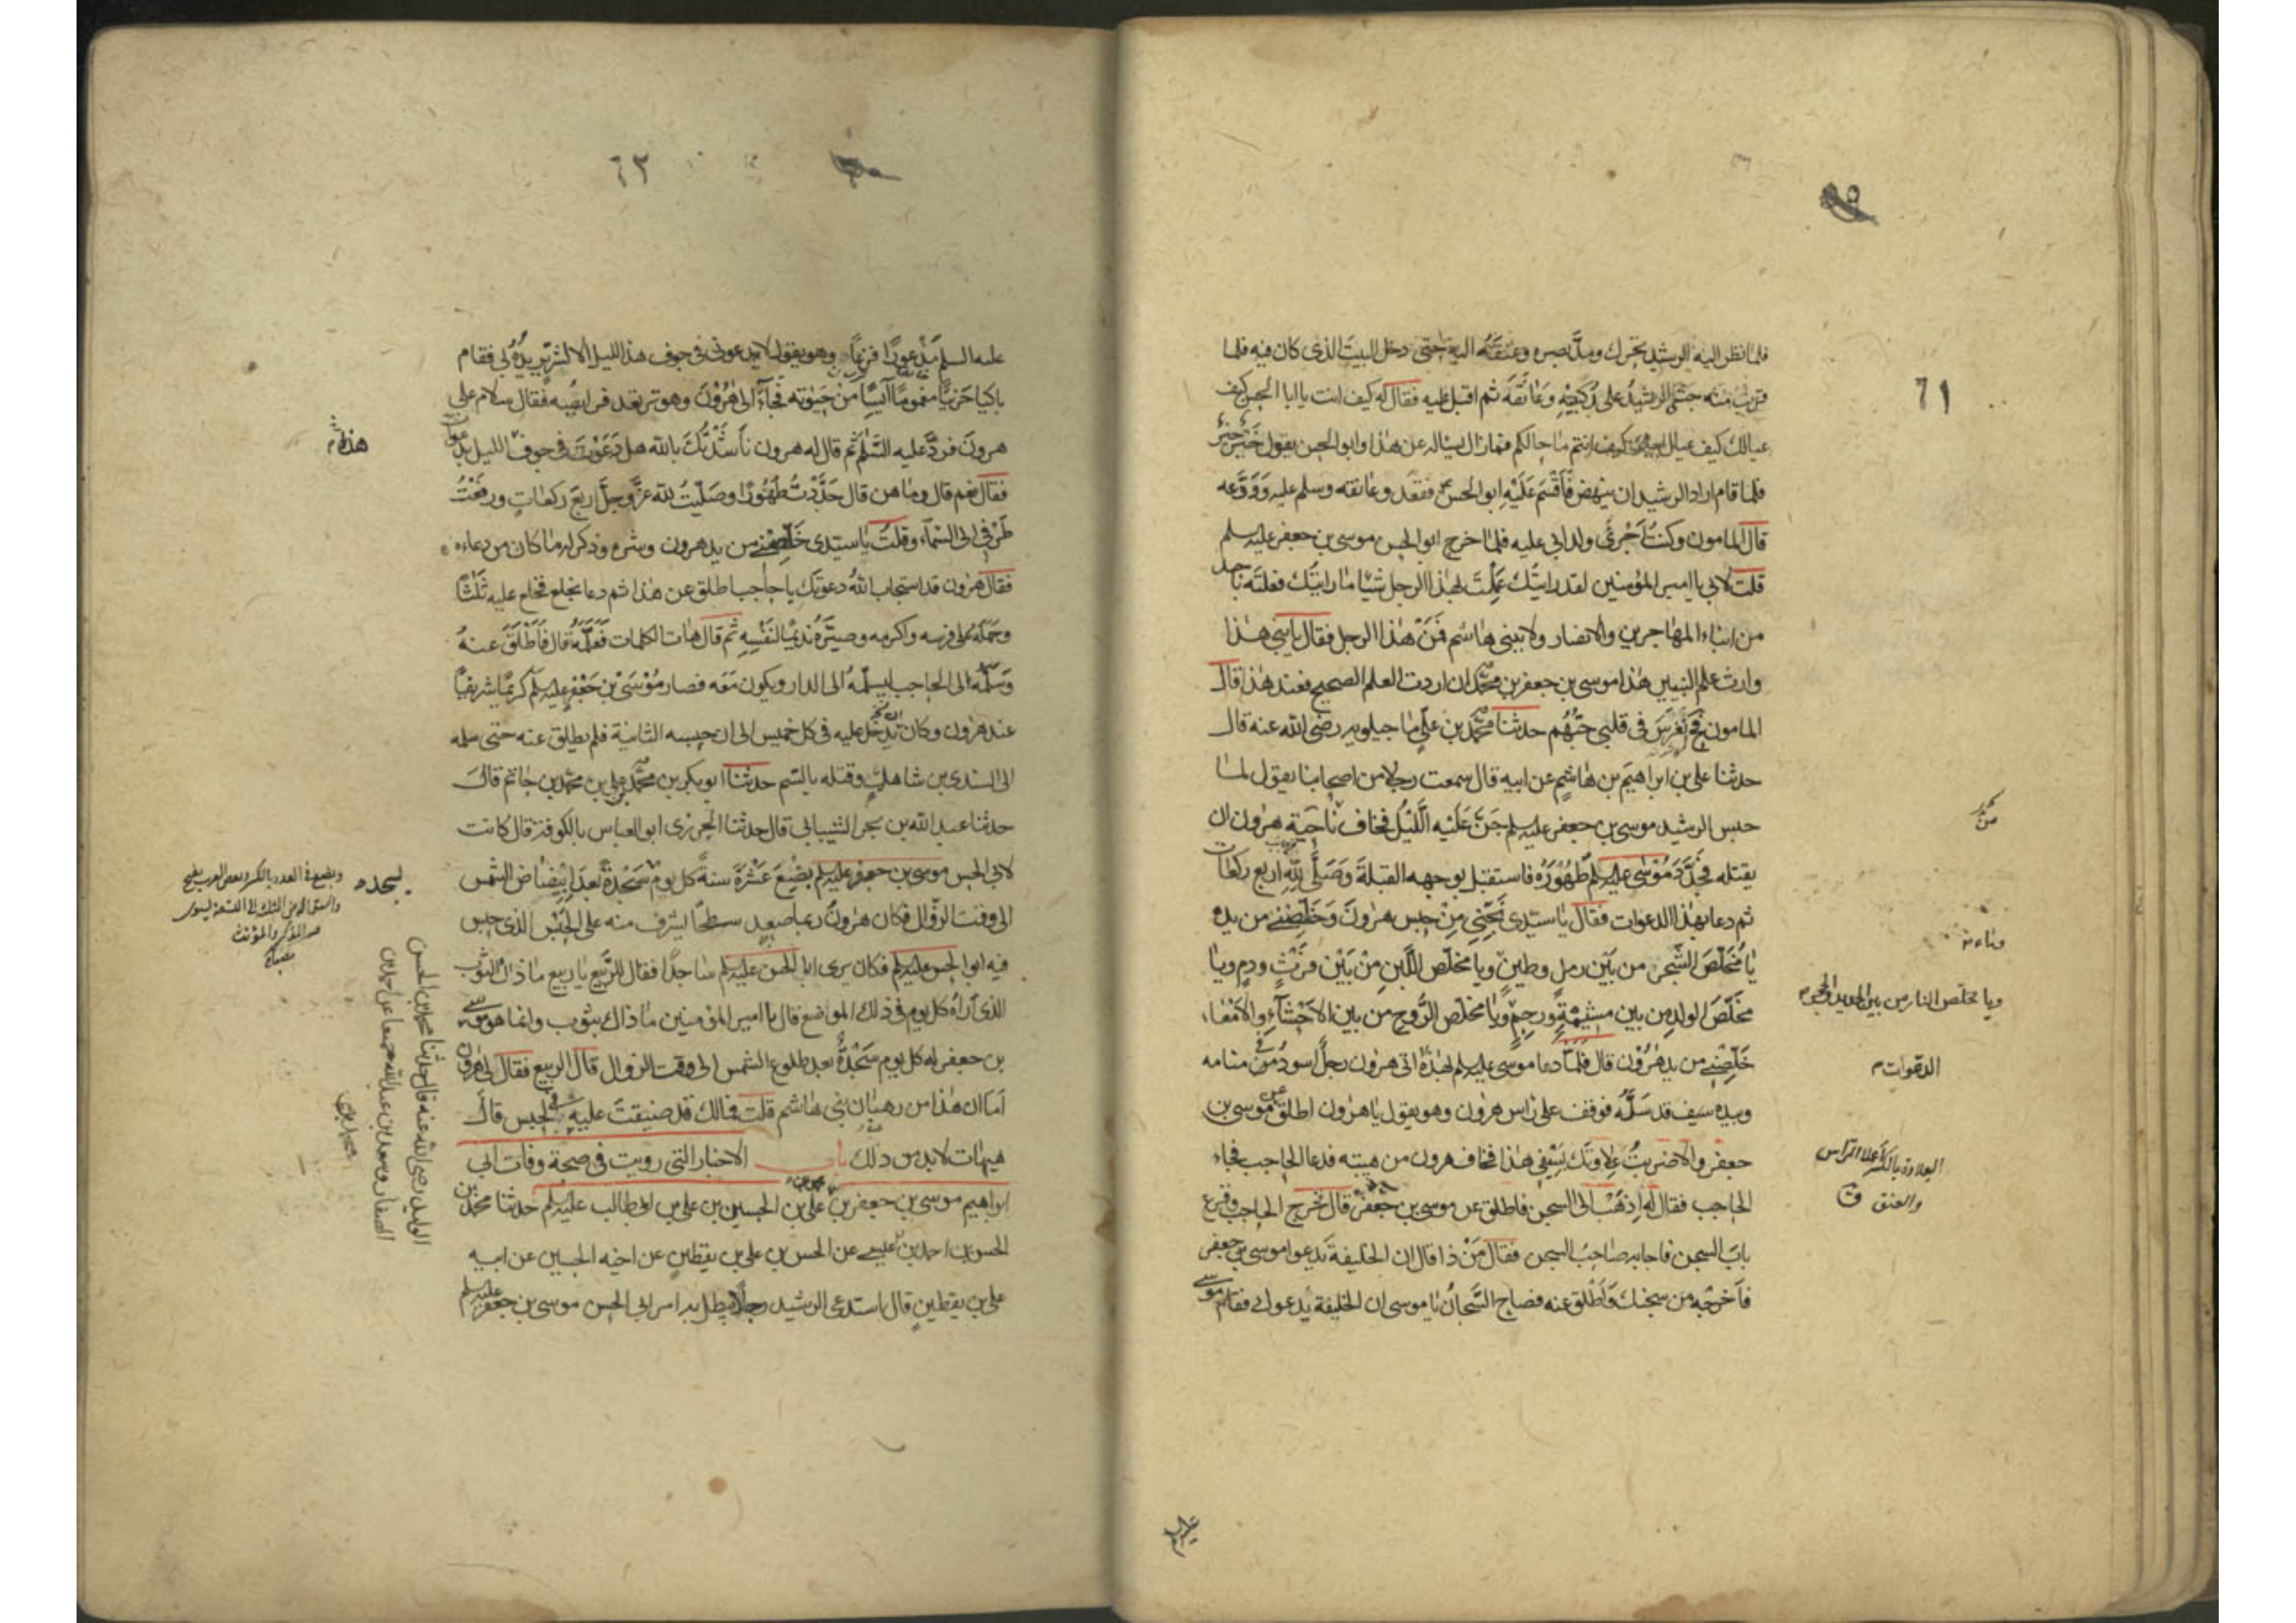 ٦١
فلما نظر اليه الرشيد تحرك ومدّ بصره وعنقه اليه حتى دخل البيت الذى كان فيه فلما
قرب منه جثى الرشيد على ركبتيه وعانقه ثم اقبل عليه فقال له كيف انت يا ابا الحسن كيف
عيالك كيف عيال ابيك كيف انتم ما حالكم فما زال يساله عن هذا وابو الحسن يقول خير خير
فلما قام اراد الرشيد ان ينهض فاقسم عليه ابو الحسن فقعد وعانقه وسلم عليه وودعه
قال المامون وكنت اجرئ ولد ابى عليه فلما خرج ابو الحسن موسى بن جعفر عليه السلم
قلت لابى يا امير المؤمنين لقد رايتك عملت لهذا الرجل شيئا ما رايتك فعلته باحد
من ابناء المهاجرين والانصار ولا ببنى هاشم فمن هذا الرجل فقال يا بنى هذا
وارث علم النبيين هذا موسى بن جعفر بن محمد ان اردت العلم الصحيح فعند هذا قال
المامون فحينئذ انغرس فى قلبى حبهم حدثنا محمد بن على ماجيلويه رضى الله عنه قال
حدثنا على بن ابراهيم بن هاشم عن ابيه قال سمعت رجلا من اصحابنا يقول لما
حبس الرشيد موسى بن جعفر عليه السلم جن عليه الليل فخاف ناحية هرون ان
يقتله فجدد موسى عليه السلم طهوره فاستقبل بوجهه القبلة وصلى لله اربع ركعات
ثم دعا بهذا الدعوات فقال يا سيدى نجنى من حبس هرون وخلصنى من يده
يا مخلص الشجر من بين رمل وطين ويا مخلص اللبن من بين فرث ودم ويا
مخلص الولد من بين مشيمة ورحم ويا مخلص الروح من بين الاحشاء والامعاء
خلصنى من يد هرون قال فلما دعا موسى عليه السلم بهذه اتى هرون رجل اسود فى منامه
وبيده سيف قد سله فوقف على راس هرون وهو يقول يا هرون اطلق عن موسى بن
جعفر والا ضربت علاوتك بسيفى هذا فخاف هرون من هيبته فدعا الحاجب فجاء
الحاجب فقال له اذهب الى السجن فاطلق عن موسى بن جعفر قال فخرج الحاجب فقرع
باب السجن فاجابه صاحب السجن فقال من ذا قال ان الخليفة يدعوا موسى بن جعفر
فاخرجه من سجنك واطلق عنه فصاح السجان يا موسى ان الخليفة يدعوك فقام موسى
ويا مخلص النار من بين الحديد والحجر
الدعوات
العلاوة بالكسر اعلا الراس
والعنق ق
٦٢
عليه السلم مذعورا فزعا وهو يقول لا يدعونى فى جوف هذا الليل الا لشر يريده لى فقام
باكيا حزينا مغموما آيسا من حيوته فجآء الى هرون وهو ترتعد فرايصه فقال سلام على
هرون فرد عليه السلم ثم قال له هرون ناشدتك بالله هل دعوت فى جوف الليل بدعوات
فقال نعم قال وما هن قال جددت طهورا وصليت لله عز وجل اربع ركعات ورفعت
طرفى الى السماء وقلت يا سيدى خلصنى من يد هرون وشره وذكر له ما كان من دعاءه
فقال هرون قد استجاب الله دعوتك يا حاجب اطلق عن هذا ثم دعا بخلع فخلع عليه ثلثا
وحمله على فرسه واكرمه وصيره نديما لنفسه ثم قال هات الكلمات فعلمه قال فاطلق عنه
وسلمه الى الحاجب ليسلمه الى الدار ويكون معه فصار موسى بن جعفر عليه السلم كريما شريفا
عند هرون وكان يدخل عليه فى كل خميس الى ان حبسه الثانية فلم يطلق عنه حتى سلمه
الى السندى بن شاهك وقتله بالسم حدثنا ابو بكر بن محمد بن على بن محمد بن حاتم قال
حدثنا عبد الله بن بحر الشيبانى قال حدثنا الخرزى ابو العباس بالكوفة قال كانت
لابى الحسن موسى بن جعفر عليه السلم بضع عشرة سنة كل يوم سجدة بعد ابيضاض الشمس
الى وقت الزوال فكان هرون ربما صعد سطحا يشرف منه على الحبس الذى حبس
فيه ابو الحسن عليه السلم فكان يرى ابا الحسن عليه السلم ساجدا فقال للربيع يا ربيع ما ذاك الثوب
الذى اراه كل يوم فى ذلك المواضع قال يا امير المؤمنين ما ذاك بثوب وانما هو موسى
بن جعفر له كل يوم سجدة بعد طلوع الشمس الى وقت الزوال قال الربيع فقال لى هرون
اما ان هذا من رهبان بنى هاشم قلت فمالك قد ضيقت عليه فى الحبس قال
هيهات لا بد من ذلك باب الاخبار التى رويت فى صحة وفات ابى
ابراهيم موسى بن جعفر بن محمد بن على بن الحسين بن على بن ابى طالب عليه السلم حدثنا محمد بن
الحسن بن احمد بن عيسى عن الحسن بن على بن يقطين عن اخيه الحسين عن ابيه
على بن يقطين قال استدعى الرشيد رجلا يبطل به امر ابى الحسن موسى بن جعفر عليه السلم
هذا
يسجد
وبضع فى العدد بالكسر وبعض العرب يفتح
المذكر والمؤنث
مصباح
الوليد رضى الله عنه قال حدثنا محمد بن الحسن
الصفار وسعد بن عبد الله جميعا عن احمد بن
محمد بن